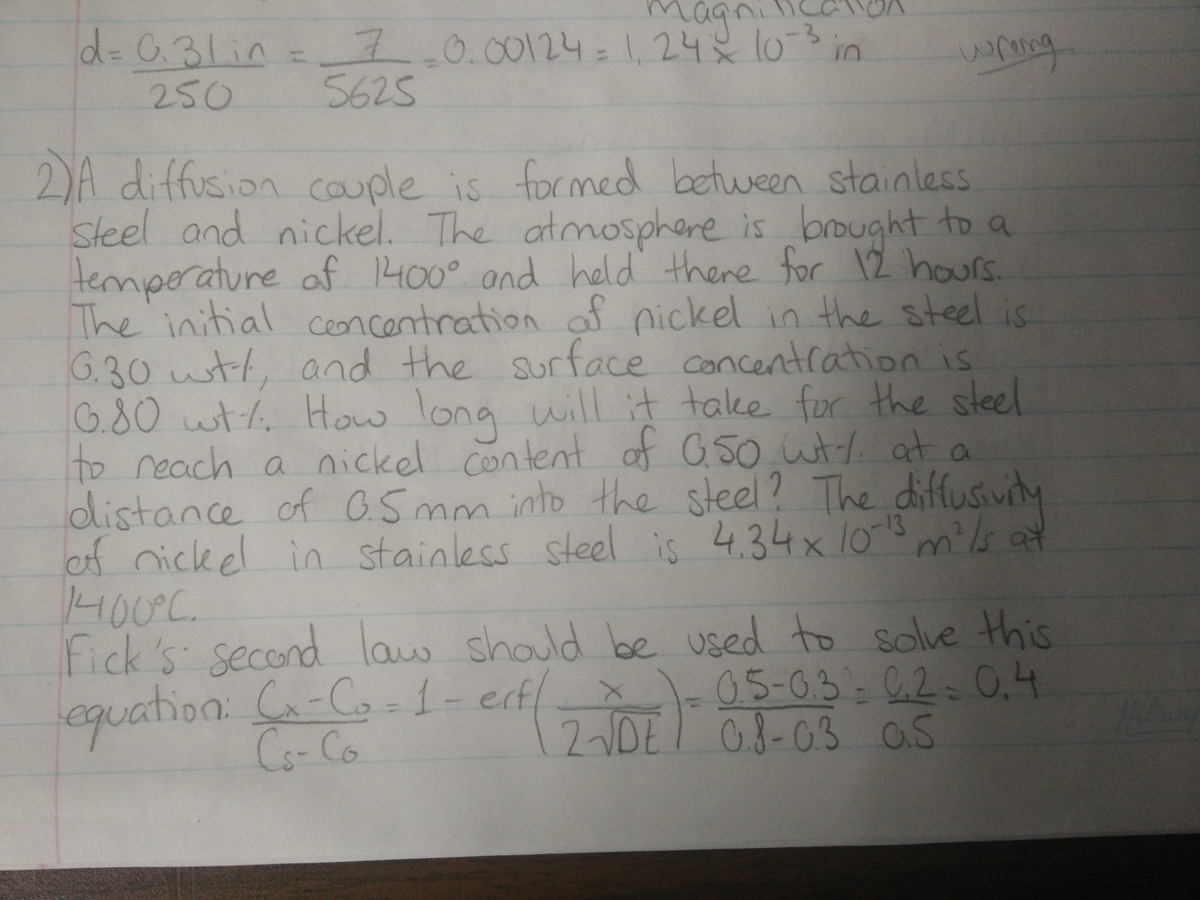 magnification
d = 0.31 in / 250 = 7 / 5625 = 0.00124 = 1.24 x 10⁻³ in wrong
2) A diffusion couple is formed between stainless
steel and nickel. The atmosphere is brought to a
temperature of 1400° and held there for 12 hours.
The initial concentration of nickel in the steel is
0.30 wt%, and the surface concentration is
0.80 wt%. How long will it take for the steel
to reach a nickel content of 0.50 wt% at a
distance of 0.5 mm into the steel? The diffusivity
of nickel in stainless steel is 4.34 x 10⁻¹³ m²/s at
1400°C.
Fick's second law should be used to solve this
equation: (Cx - C₀) / (Cs - C₀) = 1 - erf(x / 2√Dt) = (0.5 - 0.3) / (0.8 - 0.3) = 0.2 / 0.5 = 0.4